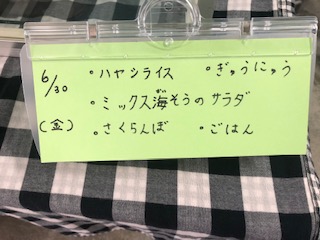 6/30
(金)
・ハヤシライス ・ぎゅうにゅう
・ミックス海そうのサラダ
・さくらんぼ ・ごはん